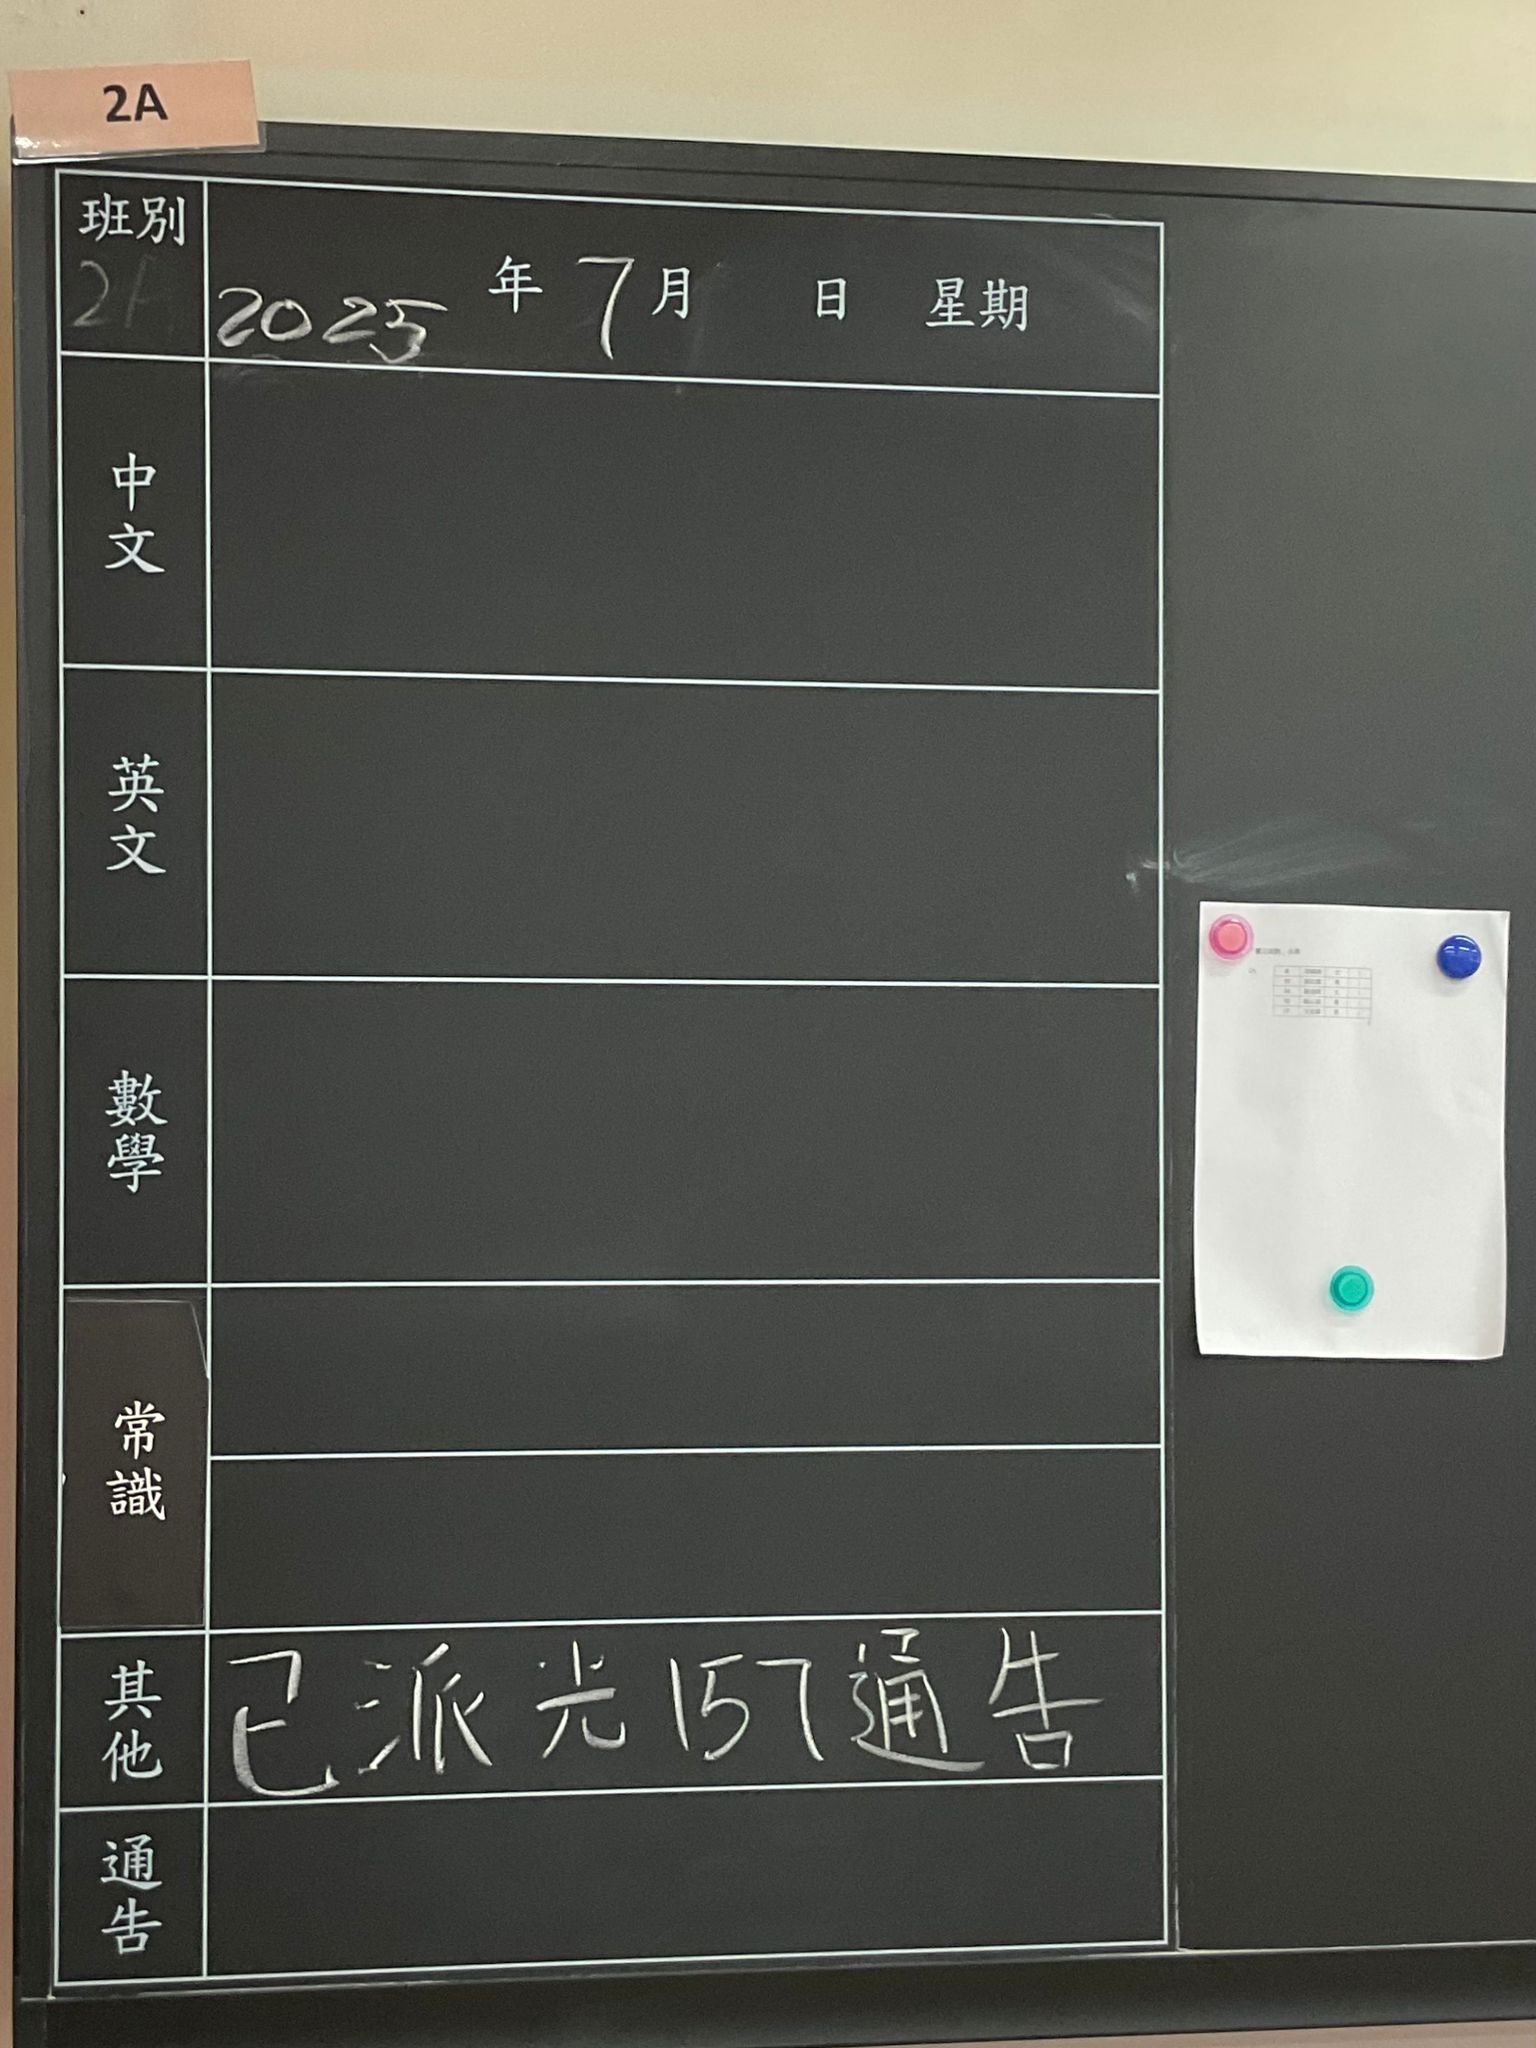 2A
班別
2A
2025 年 7 月 日 星期
中文
英文
數學
常識
其他
已派光157通告
通告